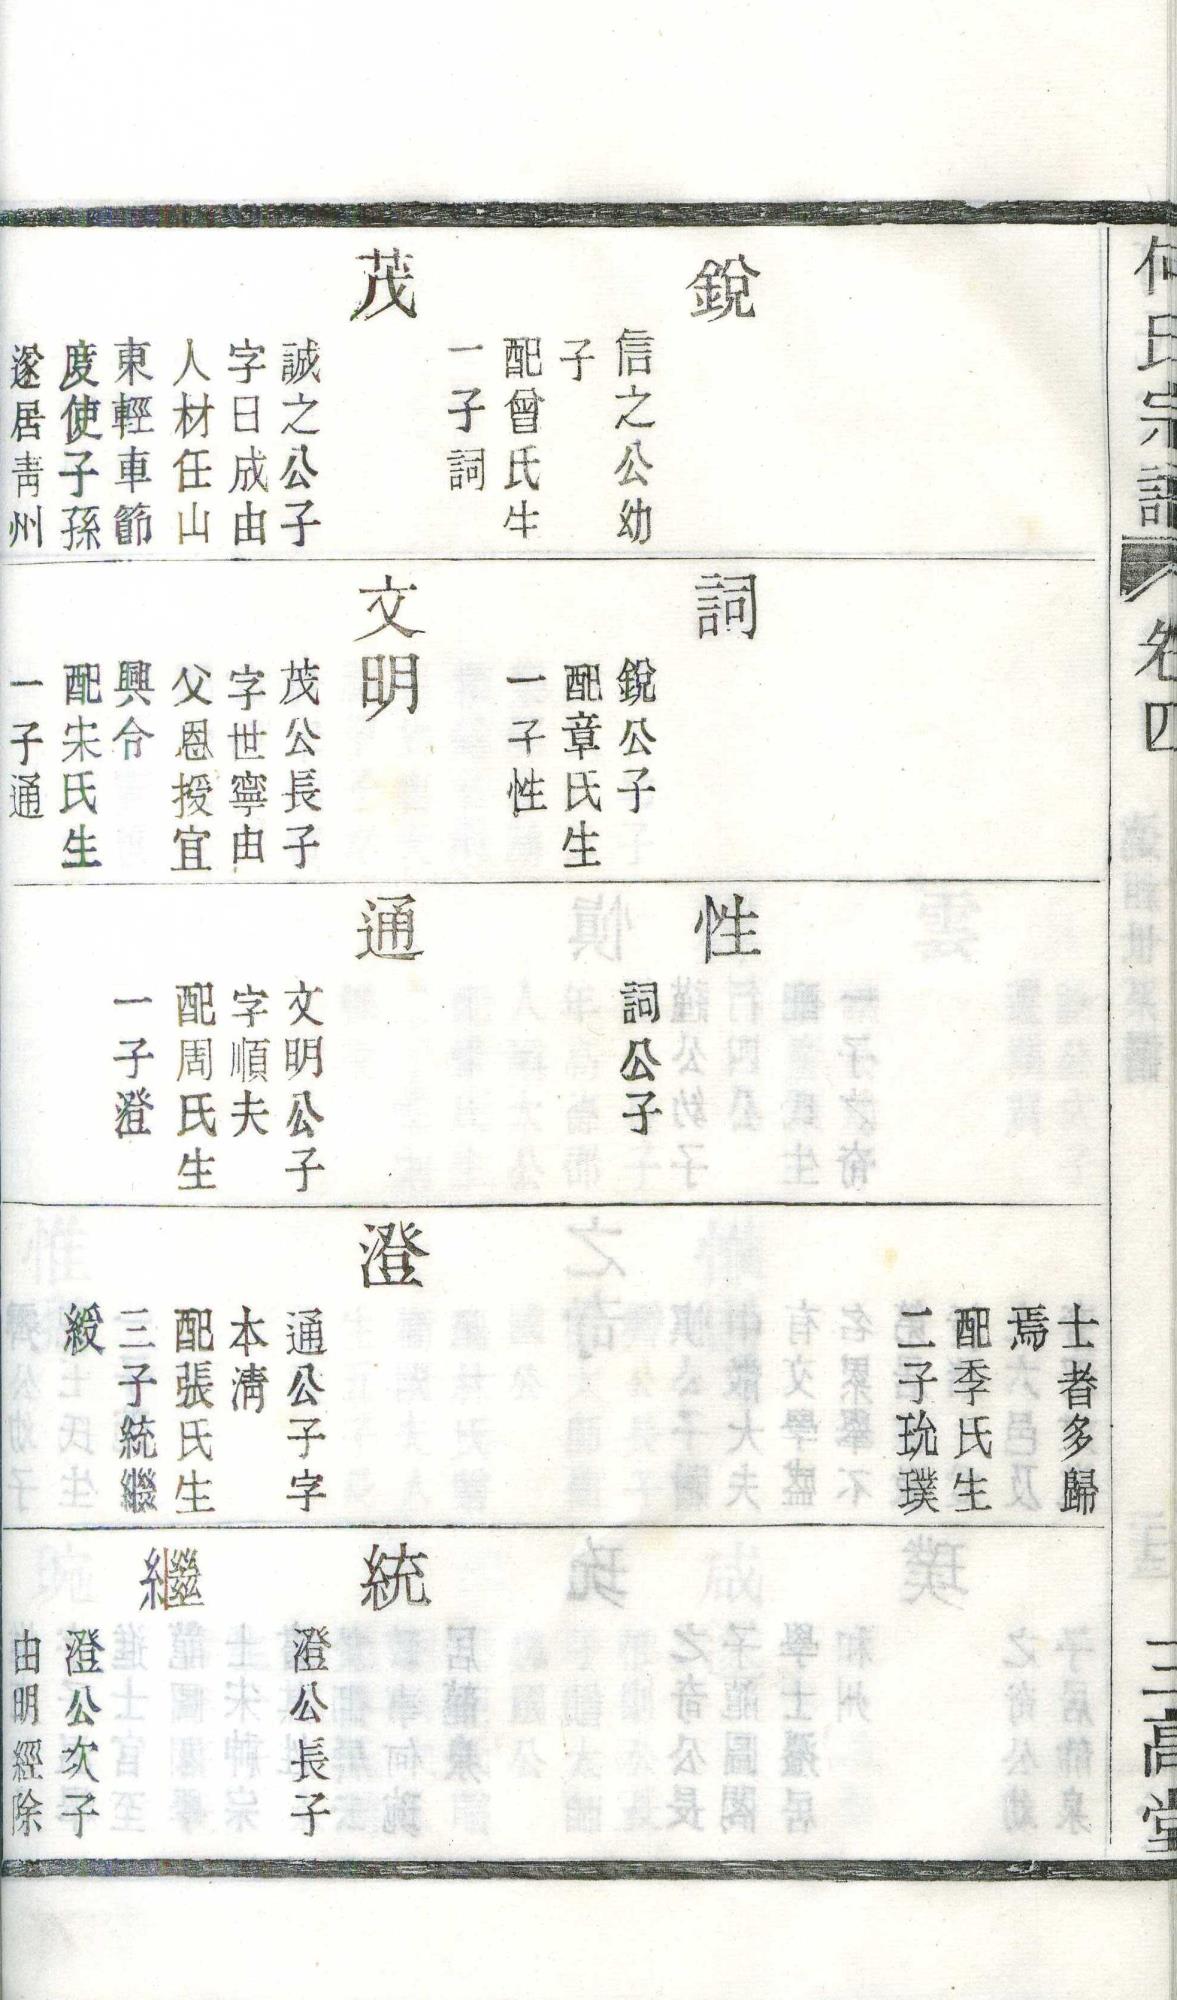 何氏宗譜
卷四
三高堂
銳
信之公幼
子
配曾氏生
一子詞
茂
誠之公子
字日成由
人材任山
東輕車節
度使子孫
遂居靑州
詞
銳公子
配章氏生
一子性
文明
茂公長子
字世寧由
父恩授宜
興令
配宋氏生
一子通
性
詞公子
通
文明公子
字順夫
配周氏生
一子澄
士者多歸
焉
配季氏生
二子珫璞
澄
通公子字
本淸
配張氏生
三子統繼
緩
統
澄公長子
繼
澄公次子
由明經除